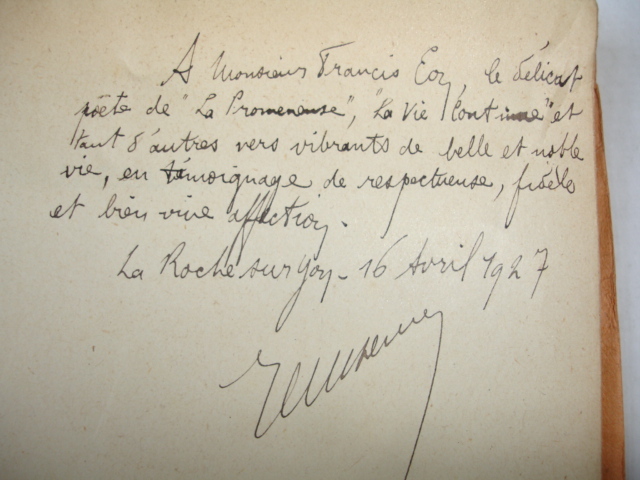 A Monsieur Francis Eon, le délicat
poète de "La Promeneuse", "La Vie Continue" et
tant d'autres vers vibrants de belle et noble
vie, en témoignage de respectueuse, fidèle
et bien vive affection.
La Roche sur Yon - 16 Avril 1927